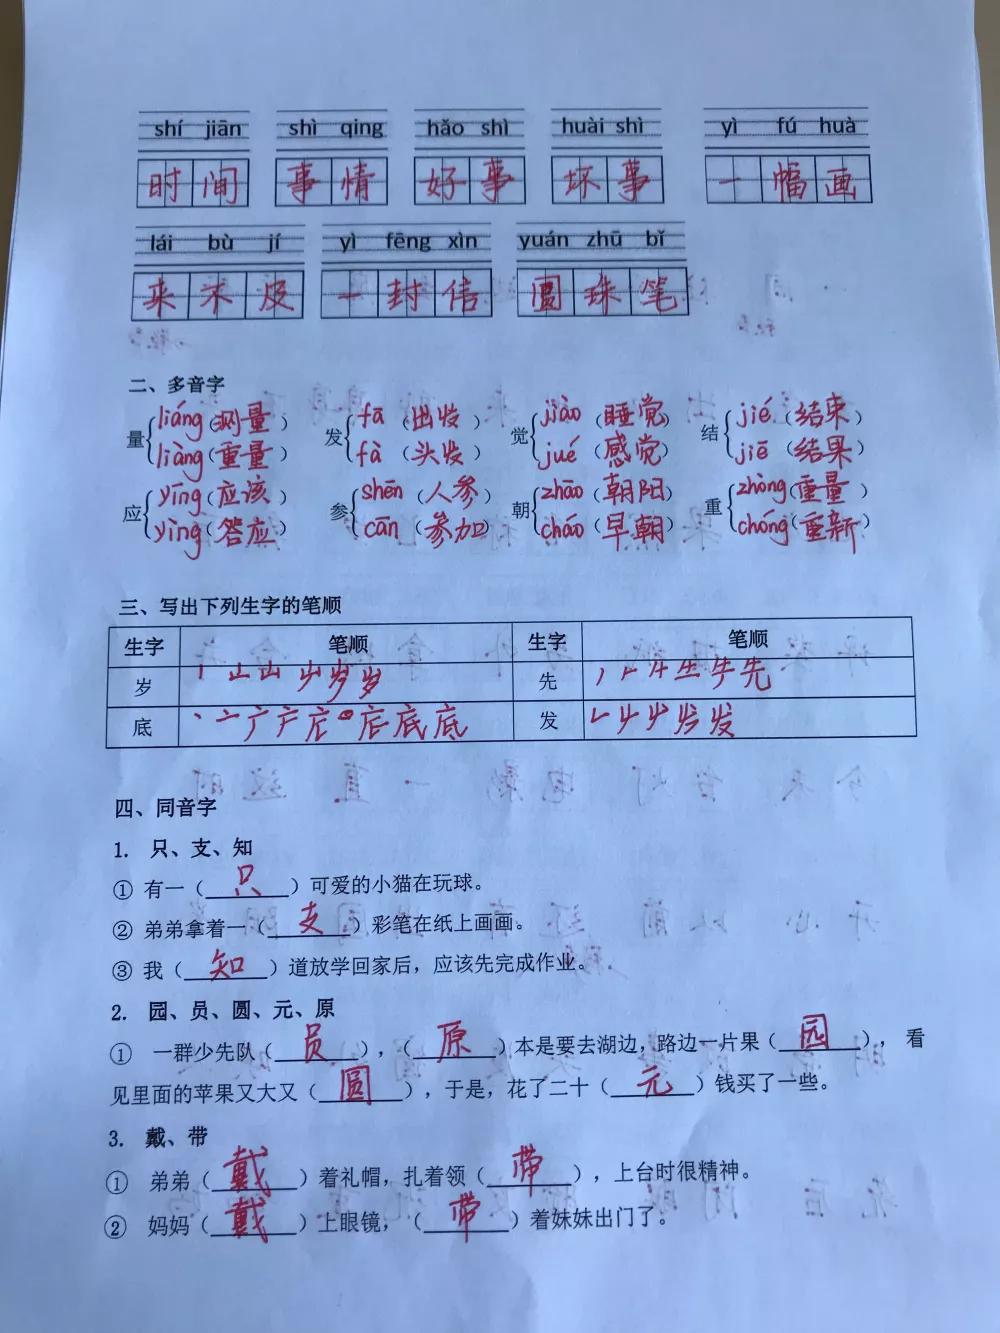 shí jiān shì qing hǎo shì huài shì yì fú huà
时间 事情 好事 坏事 一幅画
lái bù jí yì fēng xìn yuán zhū bǐ
来不及 一封信 圆珠笔
二、多音字
量 liáng（测量） 发 fā（出发） 觉 jiào（睡觉） 结 jié（结束）
liàng（重量） fà（头发） jué（感觉） jiē（结果）
应 yīng（应该） 参 shēn（人参） 朝 zhāo（朝阳） 重 zhòng（重量）
yìng（答应） cān（参加） cháo（早朝） chóng（重新）
三、写出下列生字的笔顺
生字 笔顺 生字 笔顺
岁 岁 先 先
底 底 发 发
四、同音字
1. 只、支、知
① 有一（只）可爱的小猫在玩球。
② 弟弟拿着一（支）彩笔在纸上画画。
③ 我（知）道放学回家后，应该先完成作业。
2. 园、员、圆、元、原
① 一群少先队（员），（原）本是要去湖边，路边一片果（园）， 看
见里面的苹果又大又（圆），于是，花了二十（元）钱买了一些。
3. 戴、带
① 弟弟（戴）着礼帽，扎着领（带），上台时很精神。
② 妈妈（戴）上眼镜，（带）着妹妹出门了。